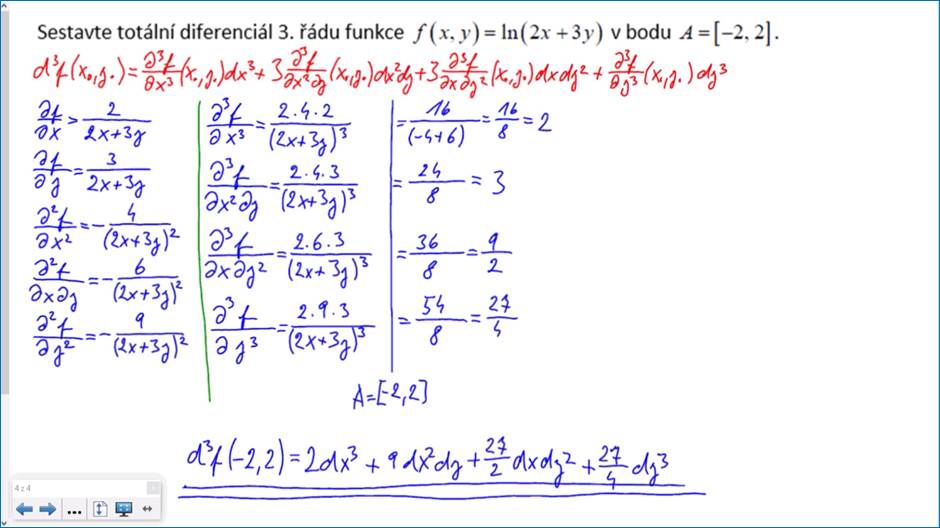 Sestavte totální diferenciál 3. řádu funkce f(x, y) = ln(2x + 3y) v bodu A = [−2, 2].
d³f(x₀,y₀) = ∂³f/∂x³ (x₀,y₀) dx³ + 3 ∂³f/∂x²∂y (x₀,y₀) dx²dy + 3 ∂³f/∂x∂y² (x₀,y₀) dx dy² + ∂³f/∂y³ (x₀,y₀) dy³
∂f/∂x = 2/(2x+3y)
∂f/∂y = 3/(2x+3y)
∂²f/∂x² = − 4/(2x+3y)²
∂²f/∂x∂y = − 6/(2x+3y)²
∂²f/∂y² = − 9/(2x+3y)²
∂³f/∂x³ = 2.4.2/(2x+3y)³ = 16/(−4+6) = 16/8 = 2
∂³f/∂x²∂y = 2.4.3/(2x+3y)³ = 24/8 = 3
∂³f/∂x∂y² = 2.6.3/(2x+3y)³ = 36/8 = 9/2
∂³f/∂y³ = 2.9.3/(2x+3y)³ = 54/8 = 27/4
A=[−2,2]
d³f(−2,2) = 2dx³ + 9dx²dy + 27/2 dxdy² + 27/4 dy³
4 z 4